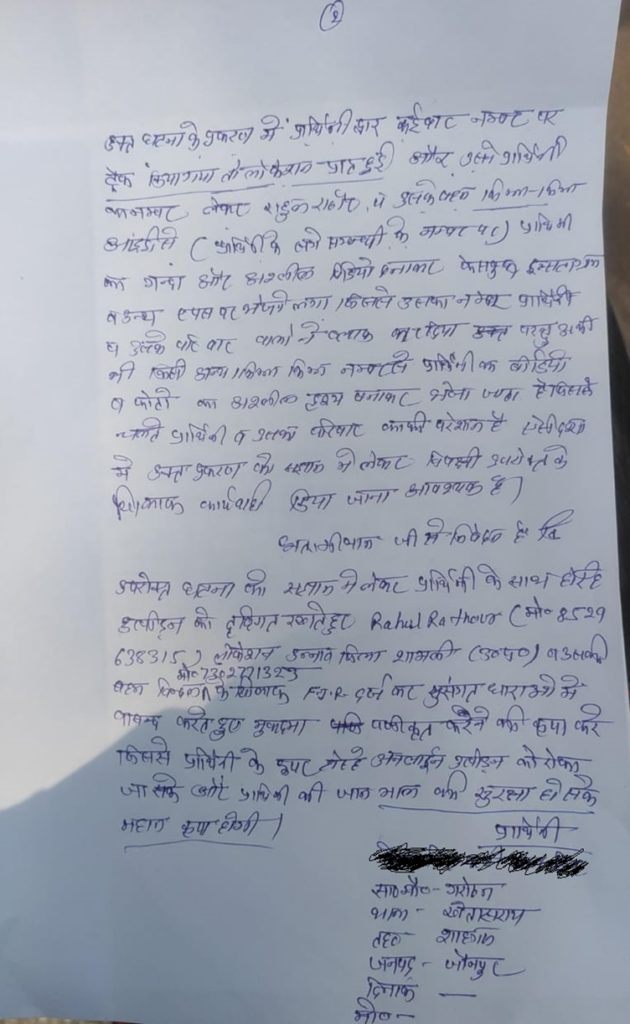 (२)
उक्त घटना के प्रकरण में प्रार्थिनी द्वारा कईबार नम्बर पर
ट्रेक किया गया तो लोकेशन प्राप्त हुई और उसने प्रार्थिनी
का नम्बर लेकर राहुल राठौर, व उसके बहन भिन्न-भिन्न
आईडी से (प्रार्थिनी के सगे सम्बन्धी के नम्बर पर) प्रार्थिनी
का गन्दा और अश्लील विडियो बनाकर फेसबुक इन्स्टाग्राम
व अन्य एप्स पर भेजने लगा जिससे उसका नम्बर प्रार्थिनी
व उसके परिवार वालों ने ब्लाक कर दिया परन्तु अभी
भी किसी अन्य भिन्न भिन्न नम्बर से प्रार्थिनी का वीडियो
व फोटो का अश्लील दृश्य बनाकर भेजा जाता है जिसके
चलते प्रार्थिनी व उसका परिवार काफी परेशान है ऐसी दशा
में उक्त प्रकरण को ध्यान में लेकर विपक्षी उपरोक्त के
खिलाफ कार्यवाही किया जाना आवश्यक है।
अतः श्रीमान जी से निवेदन है कि
उपरोक्त घटना को ध्यान में लेकर प्रार्थिनी के साथ हो रहे
उत्पीड़न को दृष्टिगत रखते हुए Rahul Rathour (मो० 8529
638315) लोकेशन उन्नाव जिला शामली (उ०प्र०) व उसकी
मो० 7302721323
बहन के खिलाफ F.I.R दर्ज कर सुसंगत धाराओं में
पाबन्द करते हुए मुकदमा पंजीकृत करने की कृपा करें
जिससे प्रार्थिनी के ऊपर हो रहे ऑनलाईन उत्पीड़न को रोका
जा सके और प्रार्थिनी की जान माल की सुरक्षा हो सके
महान कृपा होगी।
प्रार्थिनी
सा०मौ०-
थाना - खेतासराय
तह० शाहगंज
जनपद - जौनपुर
दिनांक —
मो० -